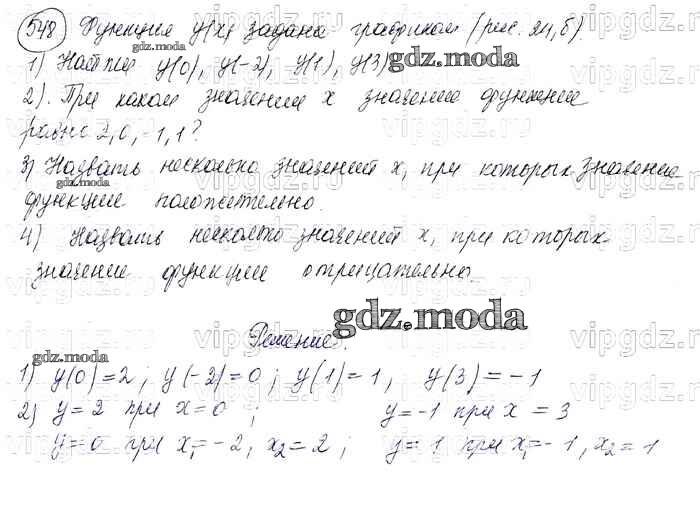 548 Функция y(x) задана графиком (рис. 21, б).
gdz.moda
1) Найти y(0), y(-2), y(1), y(3) gdz.moda
2). При каком значении x значение функции
равно 2, 0, -1, 1?
3) Назвать несколько значений x, при которых значение
gdz.moda
функции положительно.
4) Назвать несколько значений x, при которых
значение функции отрицательно.
gdz.moda
Решение.
gdz.moda
1) y(0)=2; y(-2)=0; y(1)=1, y(3)=-1
2) y=2 при x=0; y=-1 при x=3
y=0 при x₁=-2, x₂=2; y=1 при x₁=-1, x₂=1